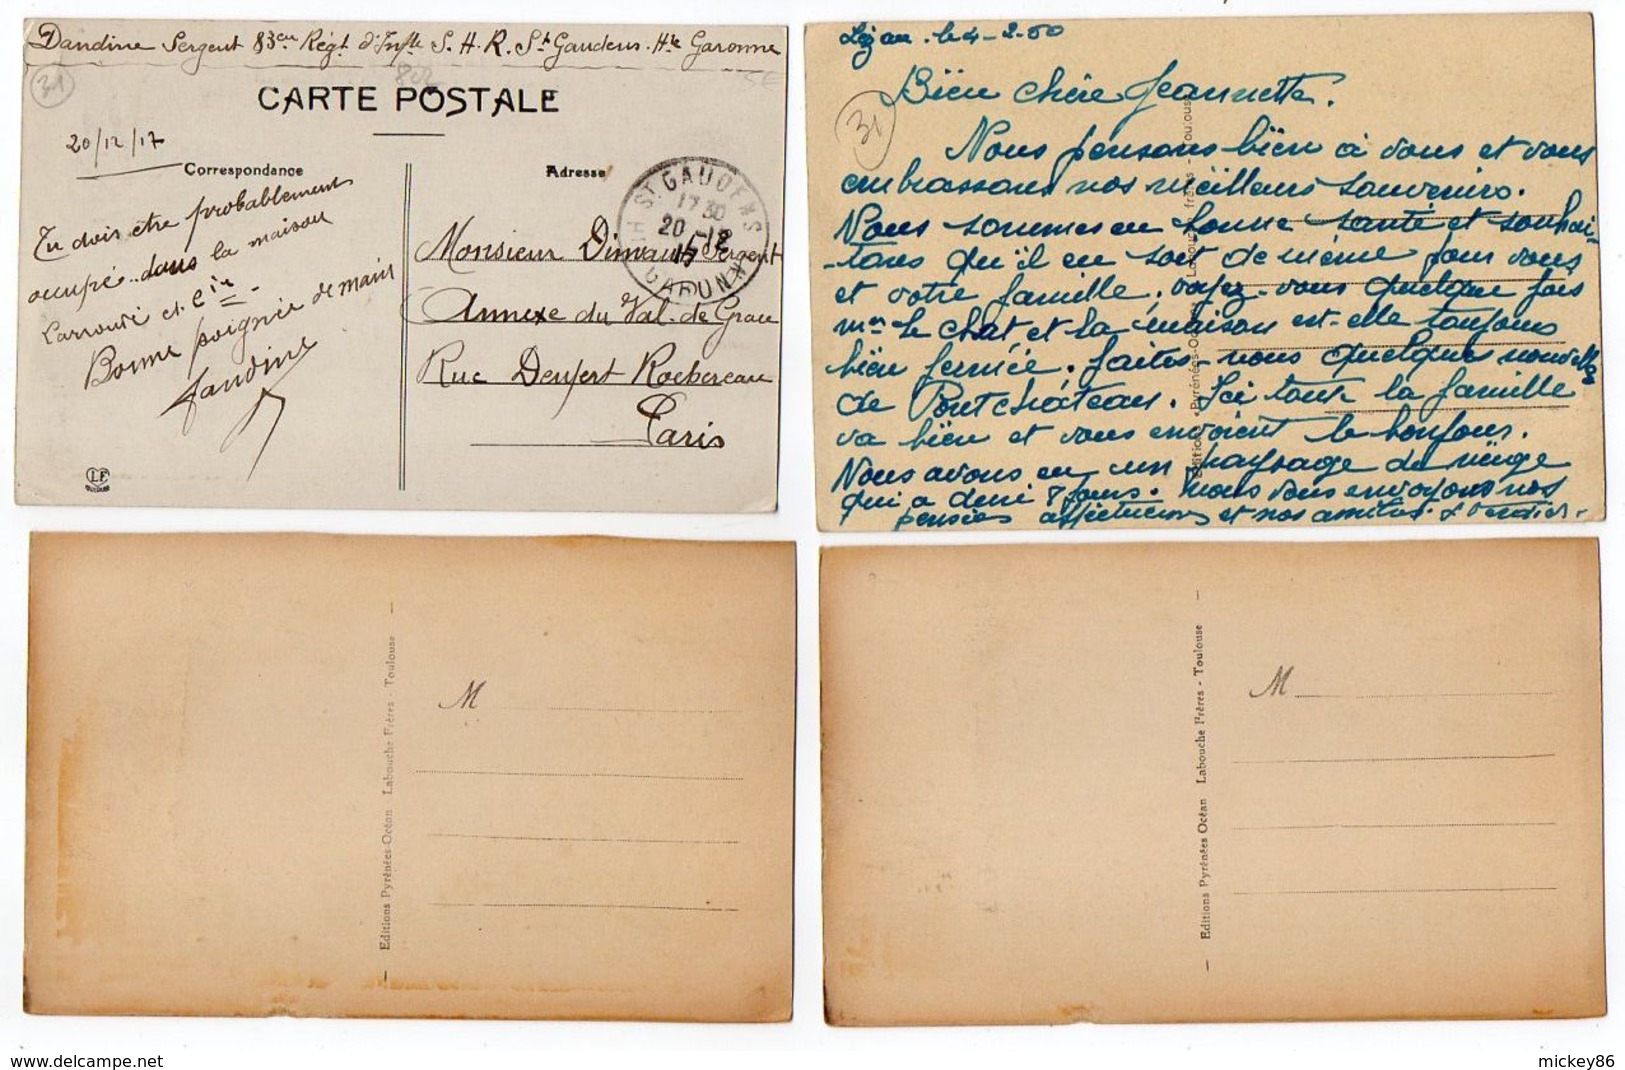 Dandine Sergent 83eu Régt d'Infie S.H.R. St Gaudens. Hte Garonne
31
802
CARTE POSTALE
20/12/17
Correspondance
Adresse
Tu dois être probablement
occupé.. dans la maison
Larrouri et Cie.
Bonne poignée de main
Dandine
Monsieur Dimault Sergent
Annexe du Val-de-Grace
Rue Denfert Rochereau
Paris
ST GAUDENS
17 30
20 -12
17
Hte GARONNE
LF
Lézan. le 4-2-50
31
Bïen chère Jeannette.
Nous pensons bïen à vous et vous
embrassons nos meilleurs souvenirs.
Nous sommes en bonne santé et souhai-
-tons qu'il en soit de même pour vous
et votre famille. voyez-vous quelque fois
mr le Chat et la maison est-elle toujours
bïen fermée. faites-nous quelques nouvelles
de Pontchâteau. Ici toute la famille
va bïen et vous envoient le bonjour.
Nous avons eu un paysage de neige
qui a duré 8 jours. nous vous envoyons nos
pensées affectueuses et nos amitiés.
Editions Pyrénées-Océan Labouche frères - Toulouse
Editions Pyrénées-Océan Labouche Frères - Toulouse
M
Editions Pyrénées Océan Labouche Frères - Toulouse
M
mickey86
www.delcampe.net